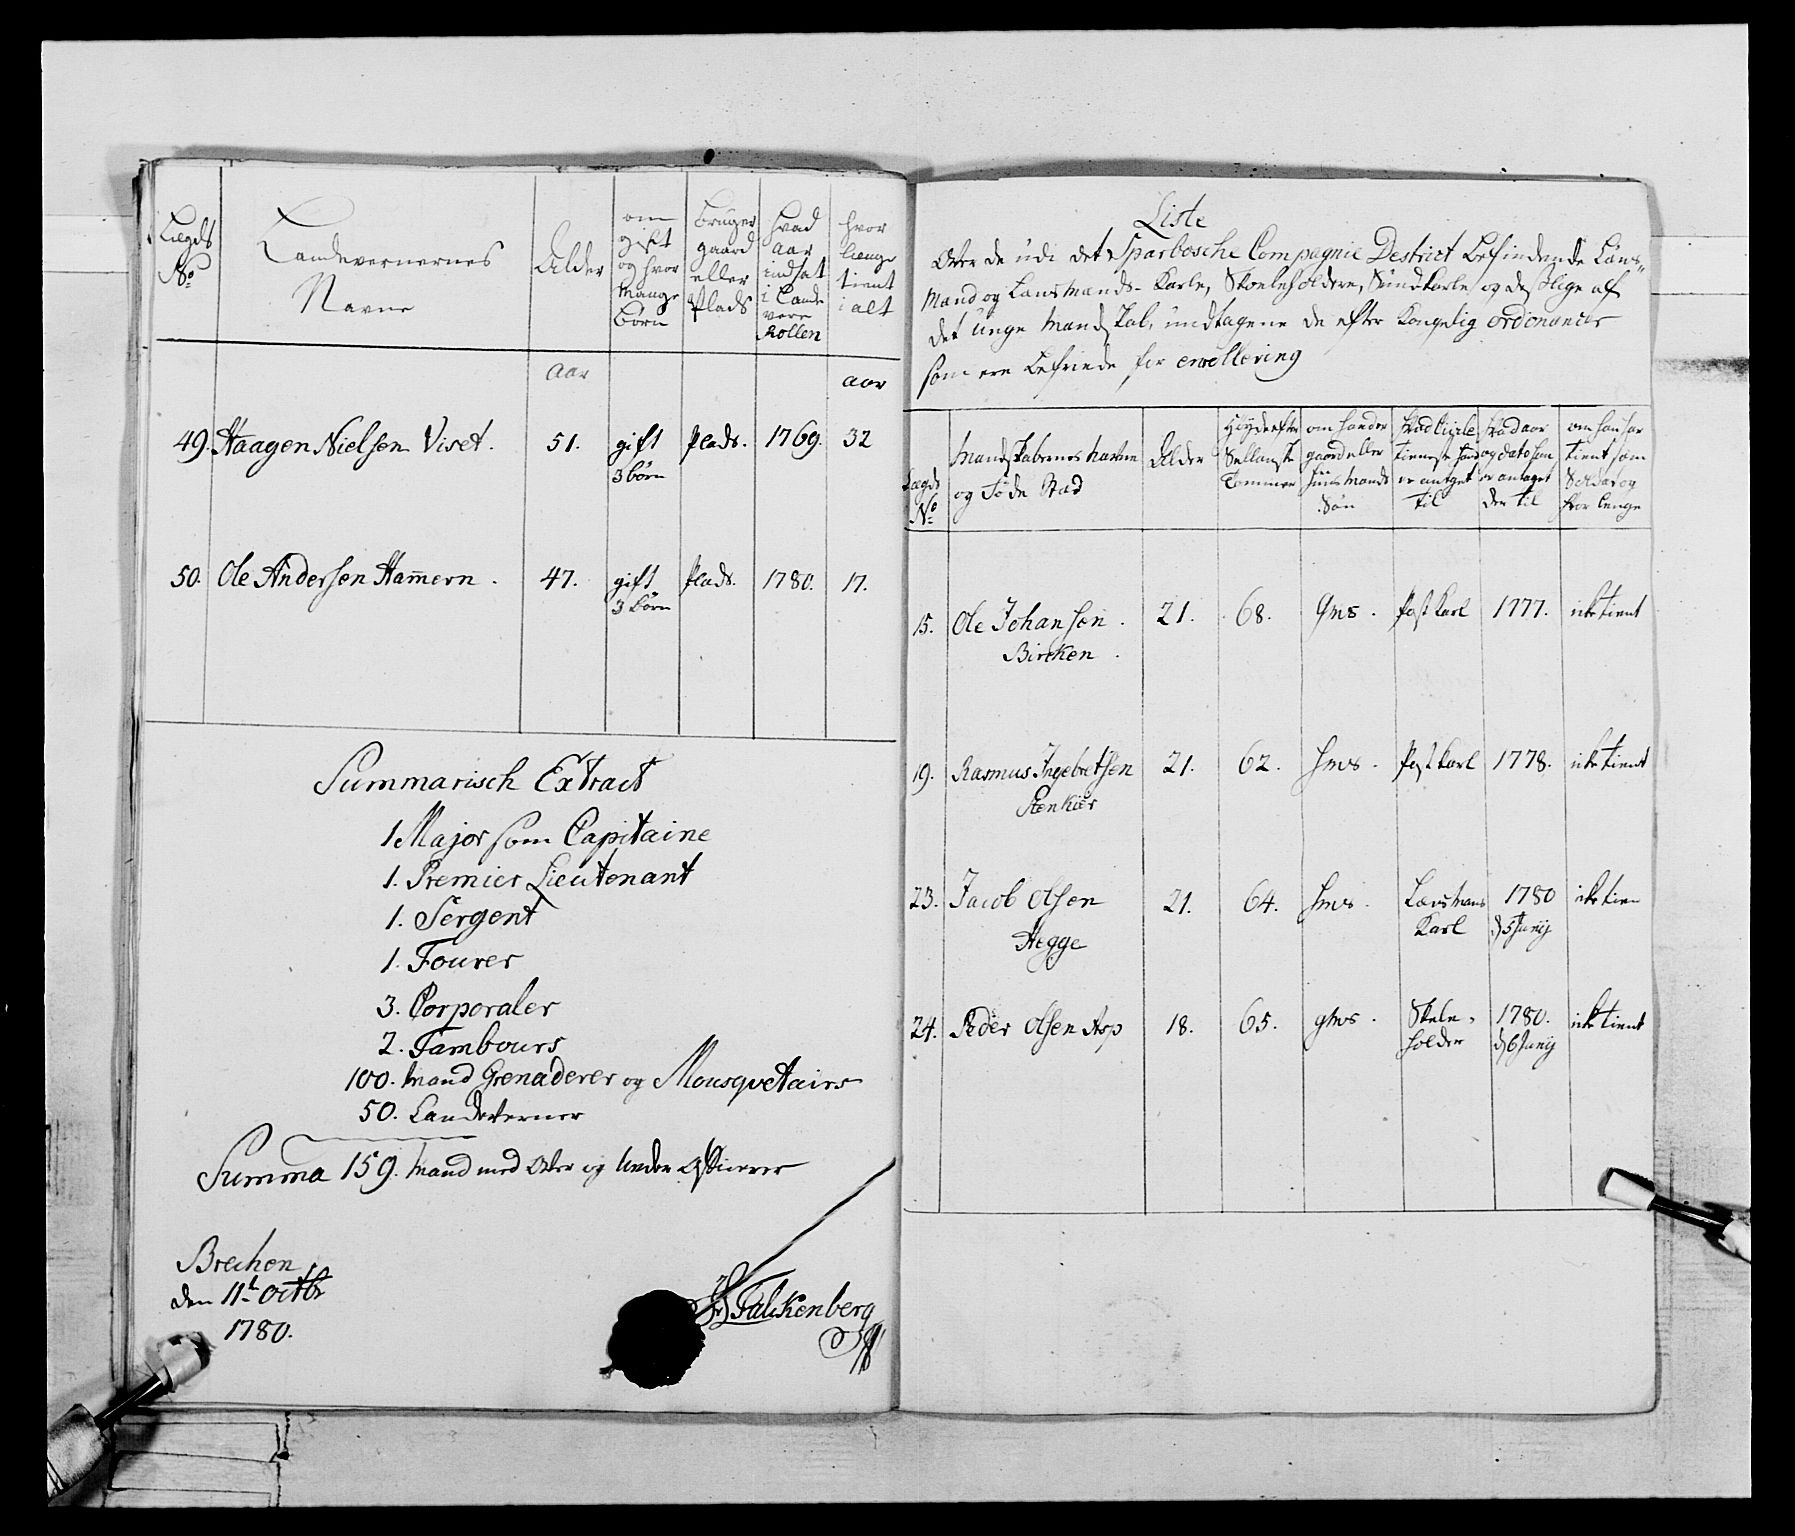 Lægds
No
Landevernernes
Navne
Alder
om
gift
og hvor
mange
børn
bruger
gaard
eller
Plads
hvad
aar
indsat
i Lande
vere
Rollen
hvor
længe
tient
i alt
aar
aar
49. Haagen Nielsen Viset. 51. gift Plads. 1769. 32
3 børn
50. Ole Andersen Hamern. 47. gift Plads. 1780. 17.
3 børn
Summarisch Extract
1 Major som Capitaine
1. Premier Lieutenant
1. Sergent
1. Fourer
3. Corporaler
2. Tambours
100. Mand Grenaderer og Mousquetairs
50. Landeverner
Summa 159. Mand med Over og Under officerer
Brechen
den 11t Octbr
1780.
Falckenberg
Liste
Over de udi det Sparbosche Compagnie Destrict befindende Læns-
Mand og Lænsmands-Karle, Skoeleholdere, Sundkarle og desslige af
det unge Mandskab, undtagene de efter Kongelig ordonancer
som ere befriede for enrollering
Lægds
No
Mandskabernes navne
og Føde Stad
Alder
Høyde efter
Sællandske
Tommer
om hand er
gaard eller
huusmands
Søn
hvad
tieneste hand
er antaget
til
hvad aar
og dato han
er antaget
der til
om han har
tient som
Soldat og
hvor lenge
15. Ole Johansen. 21. 68. gms. Postkarl 1777. icke tient
Bircken.
19. Rasmus Ingebretsen 21. 62. hms. Postkarl 1778. icke tient
Stenkier
23. Jacob Olsen 21. 64. hms. Lænsmans 1780 icke tien
Hegge Karl d 5 Junij
24. Peder Olsen Asp 18. 65. gms. Skole- 1780. icke tient
holder d 6 Junij